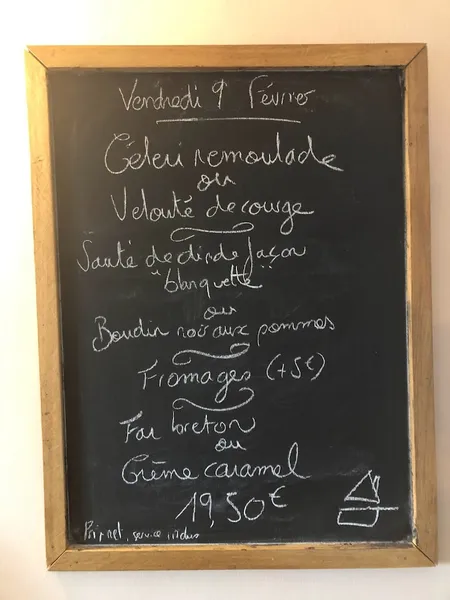 Vendredi 9 Février
Céleri remoulade
ou
Velouté de courge
Sauté de dinde façon
"blanquette"
ou
Boudin noir aux pommes
Fromages (+5€)
Far breton
ou
Crème caramel
19,50€
Prix net, service inclus